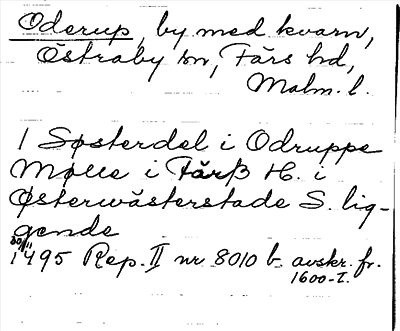 Oderup, by med kvarn,
Östraby sn, Färs hd,
Malm. l.
1 Søsterdel i Odruppe
Mølle i Färß H. i
Østerwästerstade S. lig-
gende
30/11
1495 Rep. II nr 8010 b avskr. fr.
1600-t.